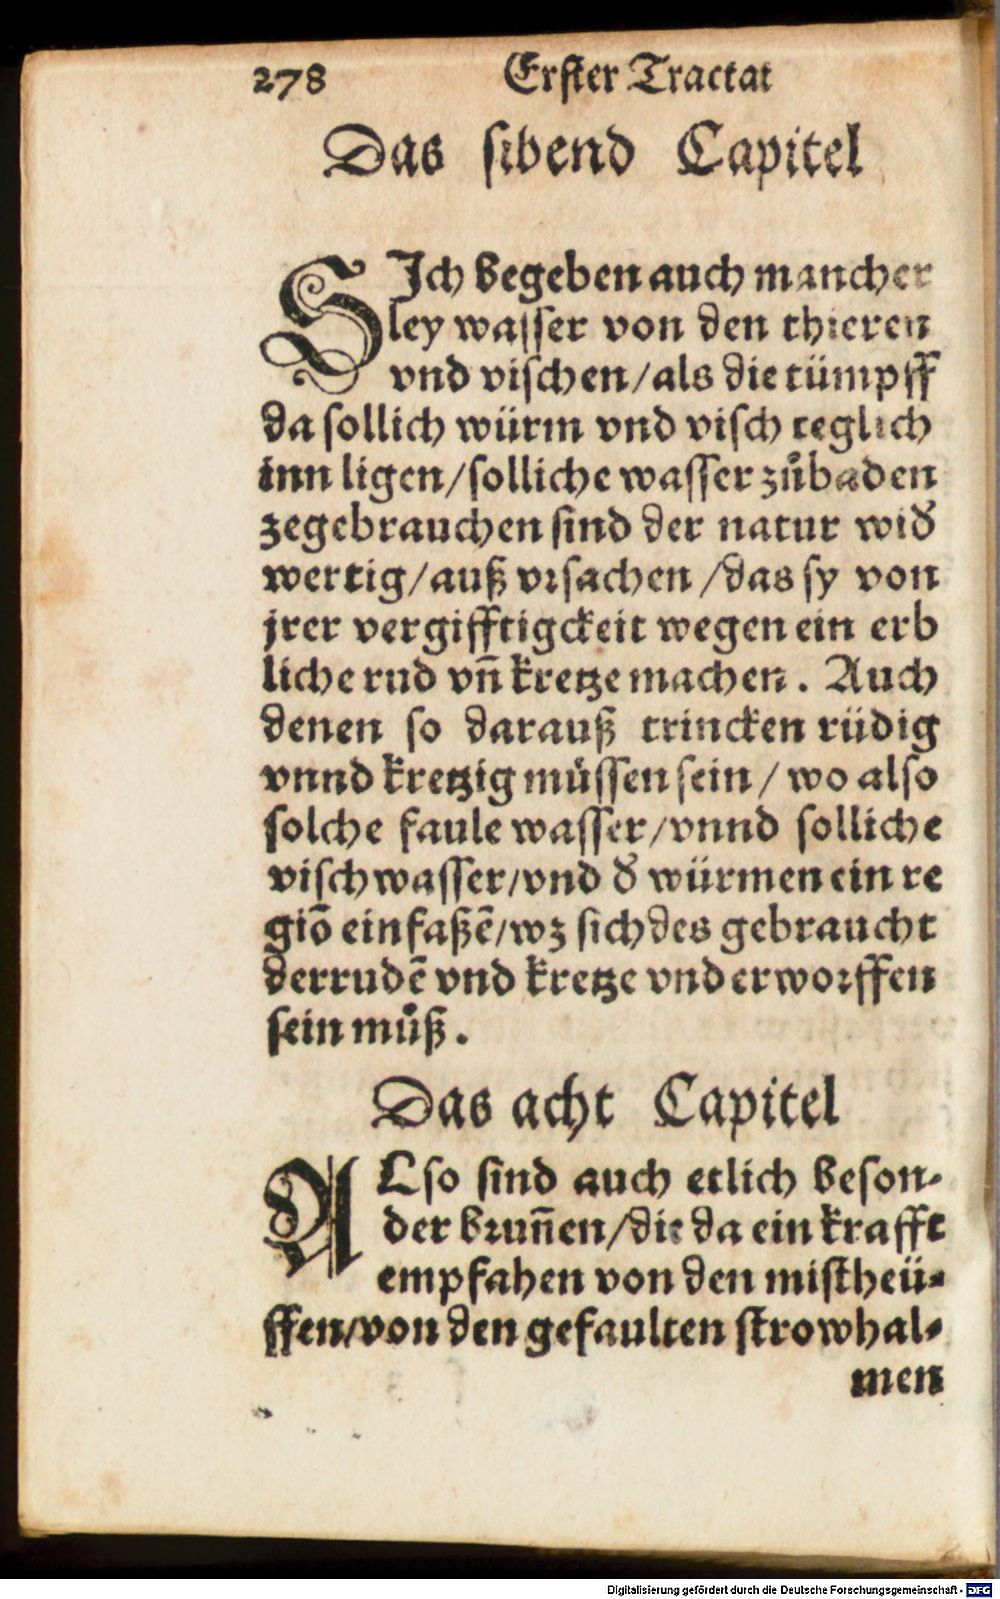 278 Erster Tractat
Das sibend Capitel
SIch begeben auch mancher
ley wasser von den thieren
vnd vischen/als die tümpff
da sollich würm vnd visch teglich
inn ligen/solliche wasser zůbaden
zegebrauchen sind der natur wid
wertig/auß vrsachen/das sy von
jrer vergifftigckeit wegen ein erb
liche rud vñ kretze machen. Auch
denen so darauß trincken rüdig
vnnd kretzig müssen sein/ wo also
solche faule wasser/vnnd solliche
vischwasser/vnd d würmen ein re
giō einfaßē/wz sich des gebraucht
derrudē vnd kretze vnd erworffen
sein můß.
Das acht Capitel
ALso sind auch etlich beson-
der bruñen/die da ein krafft
empfahen von den mistheü-
ffen/von den gefaulten strowhal-
men
Digitalisierung gefördert durch die Deutsche Forschungsgemeinschaft - DFG